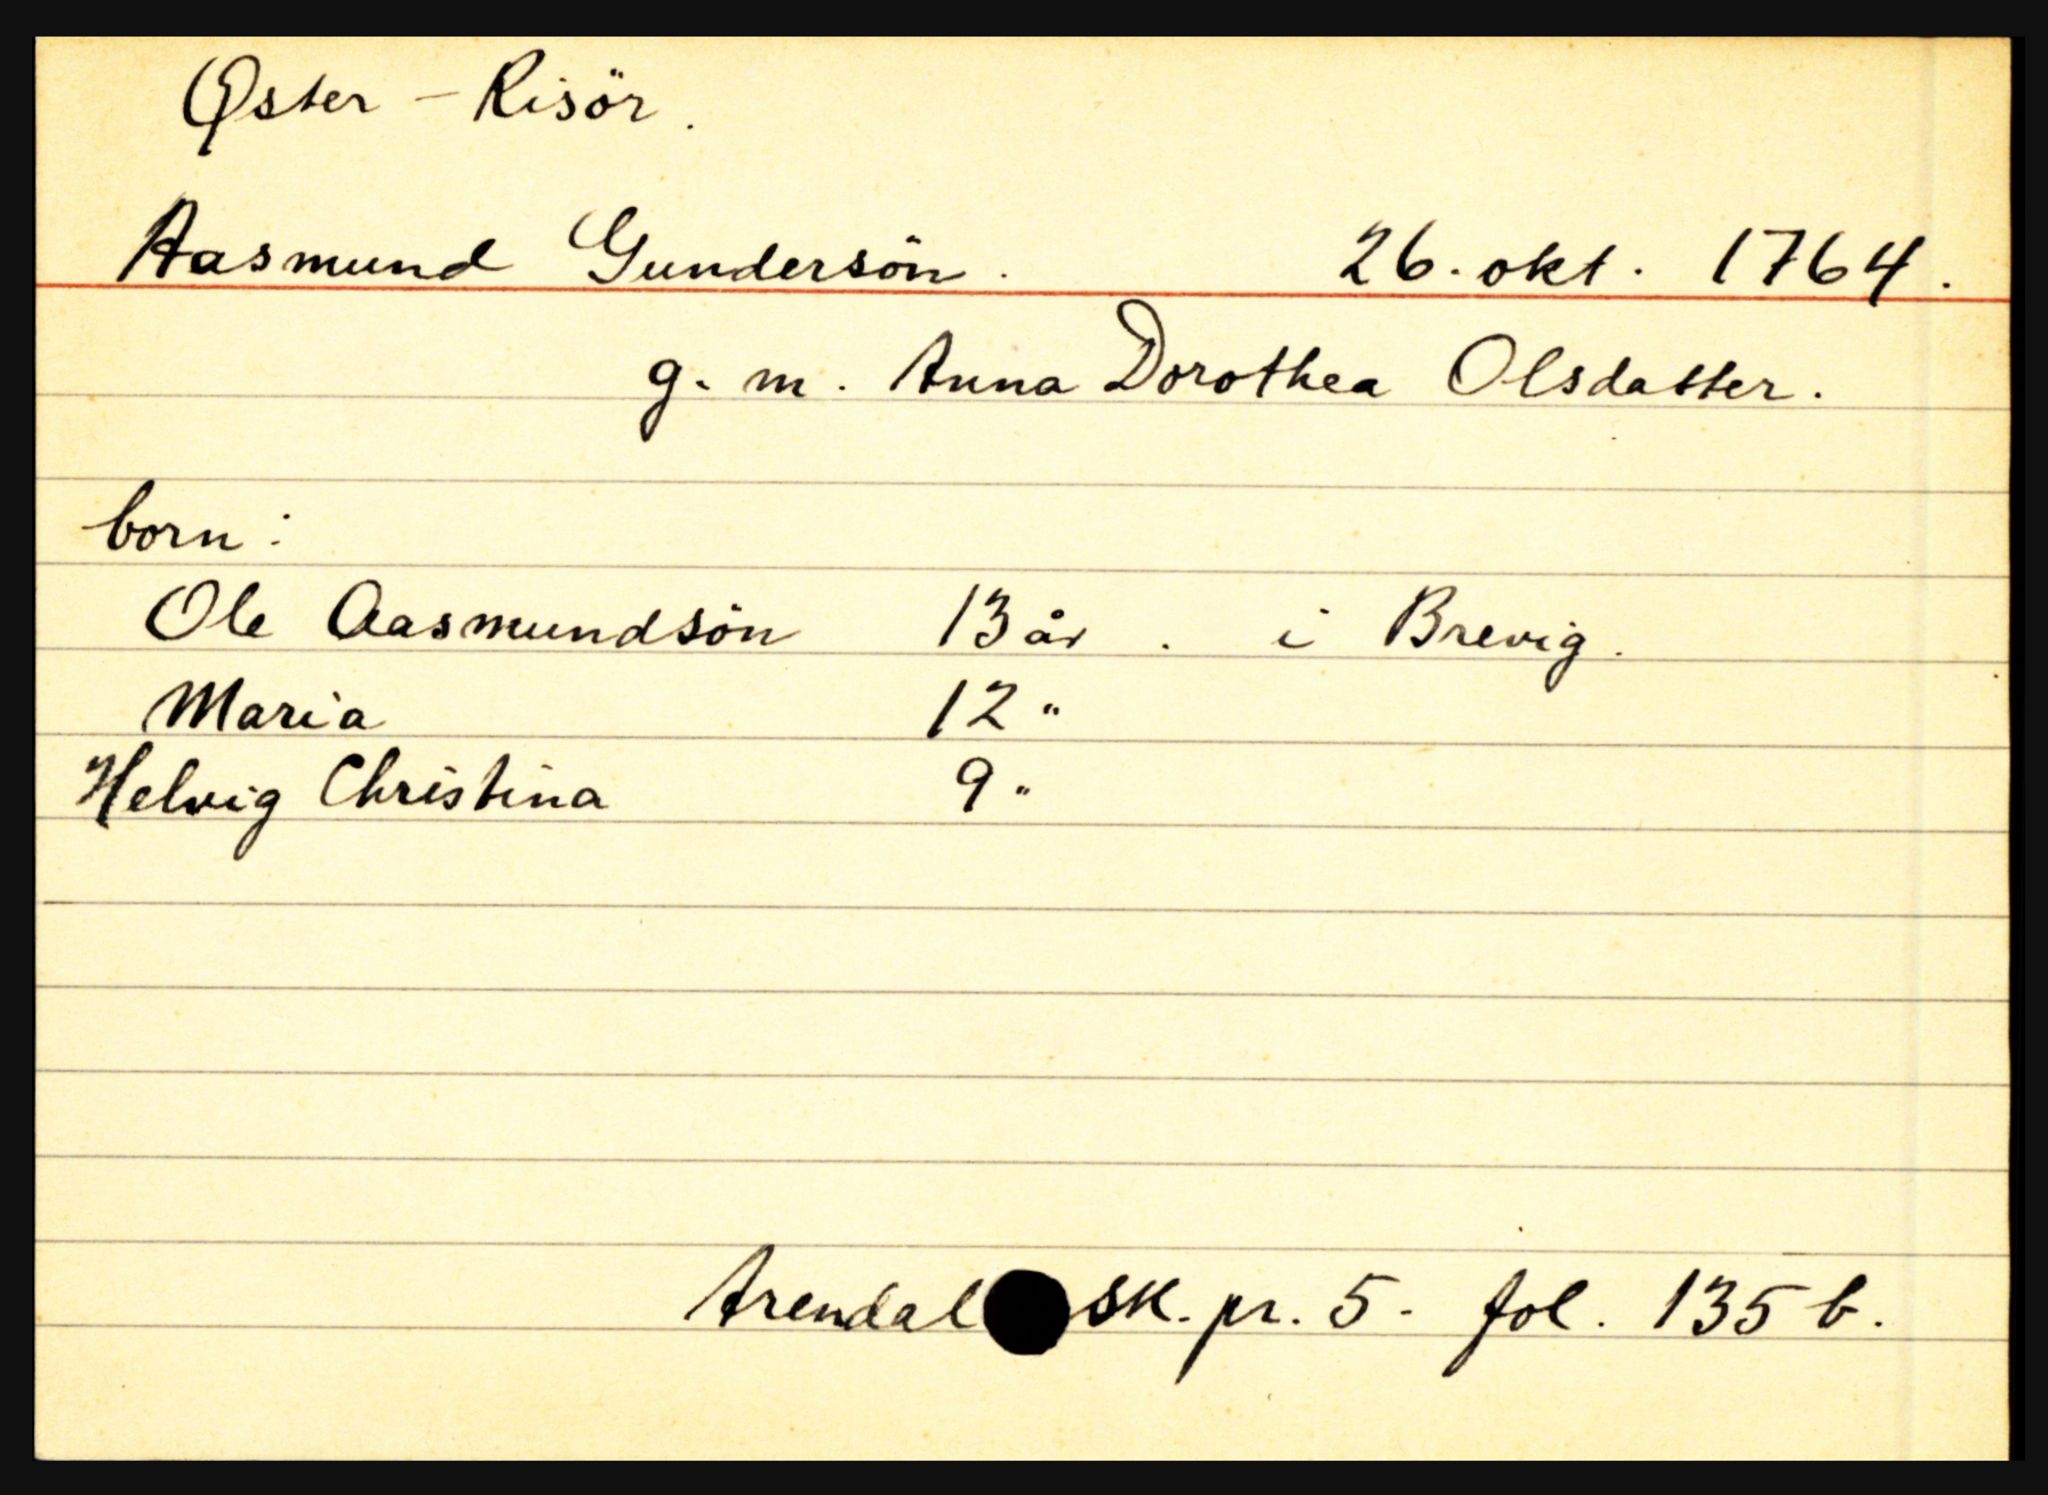 Øster - Risör.
Aasmund Gundersön. 26. okt. 1764.
g. m. Anna Dorothea Olsdatter.
born:
Ole Aasmundsön 13 år. i Brevig.
Maria 12 "
Helvig Christina 9 "
Arendal sk. pr. 5. fol. 135 b.